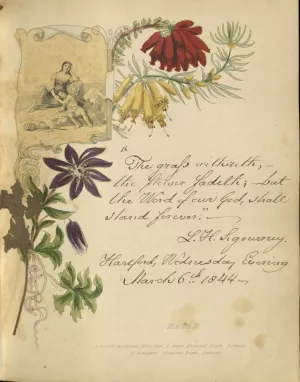 "The grass withereth,—
the flower fadeth;—but
the Word of our God, shall
stand forever."—
L. H. Sigourney.
Hartford, Wednesday Evening
March 6th 1844—